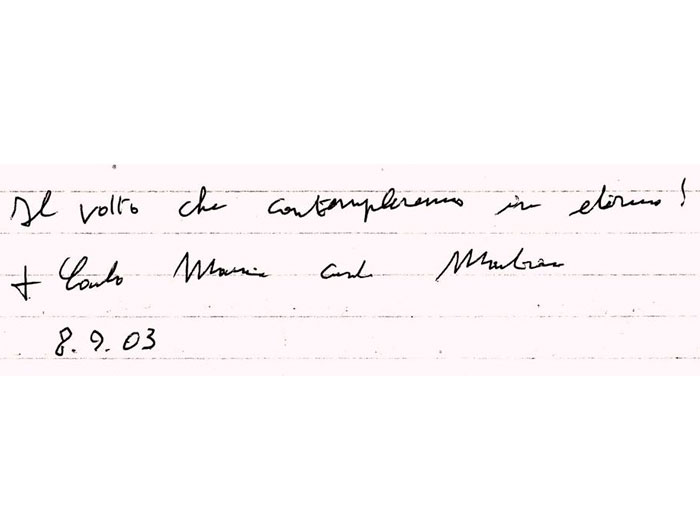 Il volto che contempleremo in eterno!
+ Carlo Maria card. Martini
8.9.03